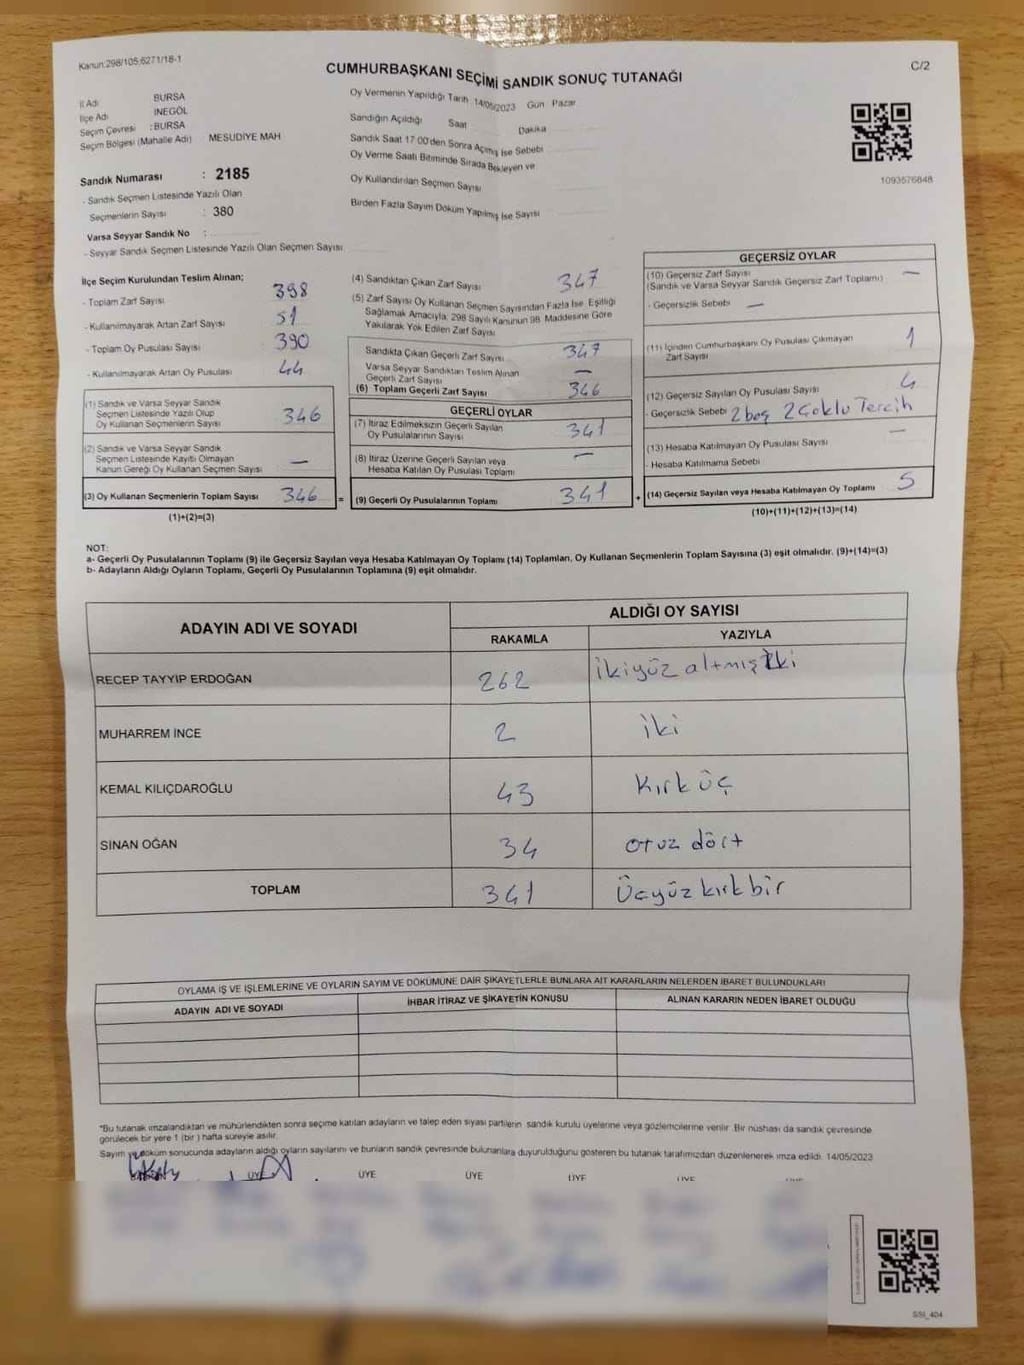 Kanun:298/105;6271/18-1
CUMHURBAŞKANI SEÇİMİ SANDIK SONUÇ TUTANAĞI
C/2
İl Adı BURSA
İlçe Adı İNEGÖL
Seçim Çevresi : BURSA
Seçim Bölgesi (Mahalle Adı) MESUDİYE MAH
Sandık Numarası : 2185
- Sandık Seçmen Listesinde Yazılı Olan
Seçmenlerin Sayısı : 380
Varsa Seyyar Sandık No :
- Seyyar Sandık Seçmen Listesinde Yazılı Olan Seçmen Sayısı
Oy Vermenin Yapıldığı Tarih 14/05/2023 Gün Pazar
Sandığın Açıldığı Saat Dakika
Sandık Saat 17:00'den Sonra Açmış İse Sebebi
Oy Verme Saati Bitiminde Sırada Bekleyen ve
Oy Kullandırılan Seçmen Sayısı
Birden Fazla Sayım Döküm Yapılmış İse Sayısı
1093576848
İlçe Seçim Kurulundan Teslim Alınan;
- Toplam Zarf Sayısı 398
- Kullanılmayarak Artan Zarf Sayısı 51
- Toplam Oy Pusulası Sayısı 390
- Kullanılmayarak Artan Oy Pusulası 44
(1) Sandık ve Varsa Seyyar Sandık
Seçmen Listesinde Yazılı Olup
Oy Kullanan Seçmenlerin Sayısı 346
(2) Sandık ve Varsa Seyyar Sandık
Seçmen Listesinde Kayıtlı Olmayan
Kanun Gereği Oy Kullanan Seçmen Sayısı —
(3) Oy Kullanan Seçmenlerin Toplam Sayısı 346 =
(1)+(2)=(3)
(4) Sandıktan Çıkan Zarf Sayısı 347
(5) Zarf Sayısı Oy Kullanan Seçmen Sayısından Fazla İse, Eşitliği
Sağlamak Amacıyla; 298 Sayılı Kanunun 98. Maddesine Göre
Yakılarak Yok Edilen Zarf Sayısı
Sandıkta Çıkan Geçerli Zarf Sayısı 347
Varsa Seyyar Sandıktan Teslim Alınan
Geçerli Zarf Sayısı —
(6) Toplam Geçerli Zarf Sayısı 346
GEÇERLİ OYLAR
(7) İtiraz Edilmeksizin Geçerli Sayılan
Oy Pusulalarının Sayısı 341
(8) İtiraz Üzerine Geçerli Sayılan veya
Hesaba Katılan Oy Pusulası Toplamı —
(9) Geçerli Oy Pusulalarının Toplamı 341 +
GEÇERSİZ OYLAR
(10) Geçersiz Zarf Sayısı —
(Sandık ve Varsa Seyyar Sandık Geçersiz Zarf Toplamı)
- Geçersizlik Sebebi —
(11) İçinden Cumhurbaşkanı Oy Pusulası Çıkmayan
Zarf Sayısı 1
(12) Geçersiz Sayılan Oy Pusulası Sayısı 4
- Geçersizlik Sebebi 2 boş 2 Çoklu Tercih
(13) Hesaba Katılmayan Oy Pusulası Sayısı —
- Hesaba Katılmama Sebebi
(14) Geçersiz Sayılan veya Hesaba Katılmayan Oy Toplamı 5
(10)+(11)+(12)+(13)=(14)
NOT:
a- Geçerli Oy Pusulalarının Toplamı (9) ile Geçersiz Sayılan veya Hesaba Katılmayan Oy Toplamı (14) Toplamları, Oy Kullanan Seçmenlerin Toplam Sayısına (3) eşit olmalıdır. (9)+(14)=(3)
b- Adayların Aldığı Oyların Toplamı, Geçerli Oy Pusulalarının Toplamına (9) eşit olmalıdır.
ADAYIN ADI VE SOYADI
ALDIĞI OY SAYISI
RAKAMLA YAZIYLA
RECEP TAYYİP ERDOĞAN 262 ikiyüz altmış iki
MUHARREM İNCE 2 iki
KEMAL KILIÇDAROĞLU 43 Kırk üç
SİNAN OĞAN 34 otuz dört
TOPLAM 341 Üçyüz kırk bir
OYLAMA İŞ VE İŞLEMLERİNE VE OYLARIN SAYIM VE DÖKÜMÜNE DAİR ŞİKAYETLERLE BUNLARA AİT KARARLARIN NELERDEN İBARET BULUNDUKLARI
ADAYIN ADI VE SOYADI İHBAR İTİRAZ VE ŞİKAYETİN KONUSU ALINAN KARARIN NEDEN İBARET OLDUĞU
*Bu tutanak imzalandıktan ve mühürlendikten sonra seçime katılan adayların ve talep eden siyasi partilerin sandık kurulu üyelerine veya gözlemcilerine verilir. Bir nüshası da sandık çevresinde
görülecek bir yere 1 (bir) hafta süreyle asılır.
Sayım ve döküm sonucunda adayların aldığı oyların sayılarını ve bunların sandık çevresinde bulunanlara duyurulduğunu gösteren bu tutanak tarafımızdan düzenlenerek imza edildi. 14/05/2023
ÜYE ÜYE ÜYE ÜYE ÜYE
SSI_404